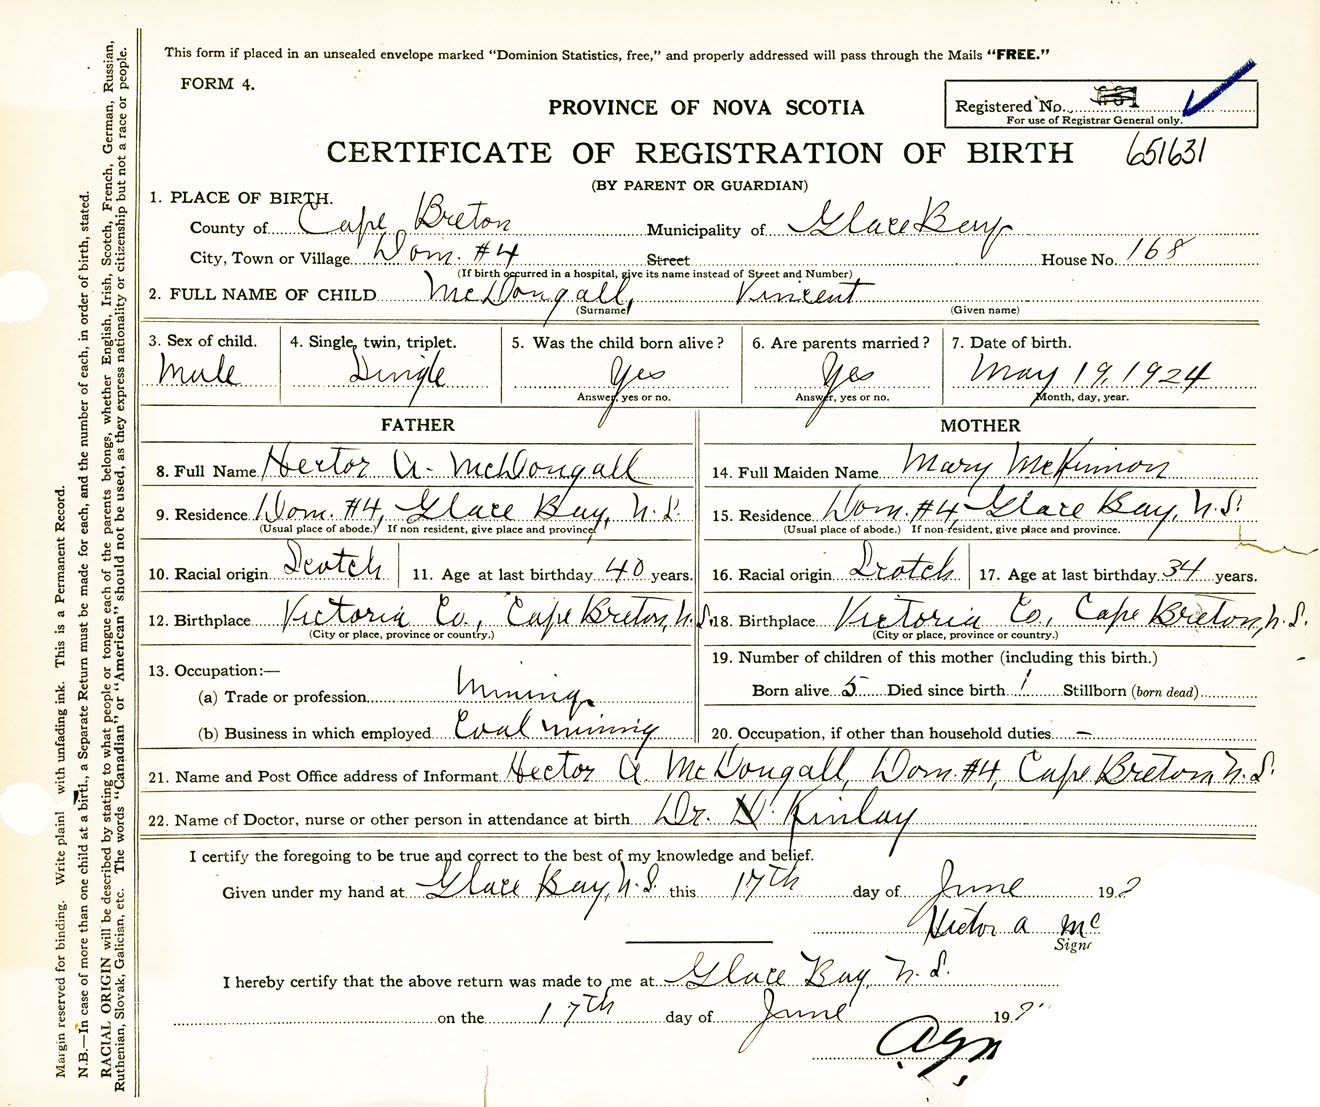 This form if placed in an unsealed envelope marked "Dominion Statistics, free," and properly addressed will pass through the Mails "FREE."
FORM 4.
PROVINCE OF NOVA SCOTIA
Registered No.
For use of Registrar General only.
CERTIFICATE OF REGISTRATION OF BIRTH 651631
(BY PARENT OR GUARDIAN)
1. PLACE OF BIRTH.
County of Cape Breton Municipality of Glace Bay
City, Town or Village Dom. #4 Street House No. 168
(If birth occurred in a hospital, give its name instead of Street and Number)
2. FULL NAME OF CHILD McDougall, Vincent
(Surname) (Given name)
3. Sex of child. 4. Single, twin, triplet. 5. Was the child born alive? 6. Are parents married? 7. Date of birth.
Male Single Yes Yes May 19, 1924
Answer, yes or no. Answer, yes or no. Month, day, year.
FATHER MOTHER
8. Full Name Hector A. McDougall 14. Full Maiden Name Mary McKinnon
9. Residence Dom. #4, Glace Bay, N.S. 15. Residence Dom. #4 Glace Bay, N.S.
(Usual place of abode.) If non resident, give place and province. (Usual place of abode.) If non-resident, give place and province.
10. Racial origin Scotch 11. Age at last birthday 40 years. 16. Racial origin Scotch 17. Age at last birthday 34 years.
12. Birthplace Victoria Co., Cape Breton, N.S. 18. Birthplace Victoria Co., Cape Breton, N.S.
(City or place, province or country.) (City or place, province or country.)
13. Occupation:— 19. Number of children of this mother (including this birth.)
(a) Trade or profession Mining Born alive 5 Died since birth 1 Stillborn (born dead)
(b) Business in which employed Coal mining 20. Occupation, if other than household duties —
21. Name and Post Office address of Informant Hector A. McDougall, Dom #4, Cape Breton, N.S.
22. Name of Doctor, nurse or other person in attendance at birth Dr. Kinlay
I certify the foregoing to be true and correct to the best of my knowledge and belief.
Given under my hand at Glace Bay, N.S. this 17th day of June 192
Hector A Mc
Sign
I hereby certify that the above return was made to me at Glace Bay, N.S.
on the 17th day of June 192
Margin reserved for binding. Write plainl with unfading ink. This is a Permanent Record.
N.B.—In case of more than one child at a birth, a Separate Return must be made for each, and the number of each, in order of birth, stated.
RACIAL ORIGIN will be described by stating to what people or tongue each of the parents belongs, whether English, Irish, Scotch, French, German, Russian,
Ruthenian, Slovak, Galician, etc. The words "Canadian" or "American" should not be used, as they express nationality or citizenship but not a race or people.